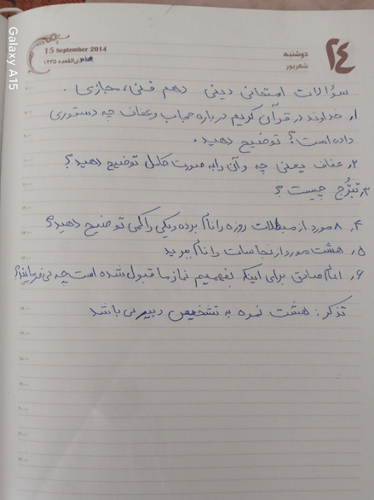 Galaxy A15
15 September 2014
دوشنبه
شهریور
۲۴
سوالات امتحانی دینی دهم فنی، مجازی.
۱. خداوند در قرآن کریم درباره حجاب و عفاف چه دستوری
داده است؟ توضیح دهید.
۲. عفاف یعنی چه و آن را به صورت کامل توضیح دهید؟
۳. تبرُّج چیست؟
۴. ۸ مورد از مبطلات روزه را نام برده و یکی را کمی توضیح دهید؟
۵. هشت مورد از نجاسات را نام ببرید
۶. امام صادق برای اینکه بفهمیم نماز ما قبول شده است چه می‌فرمایند؟
تذکر: هشت نمره به تشخیص دبیر می باشد